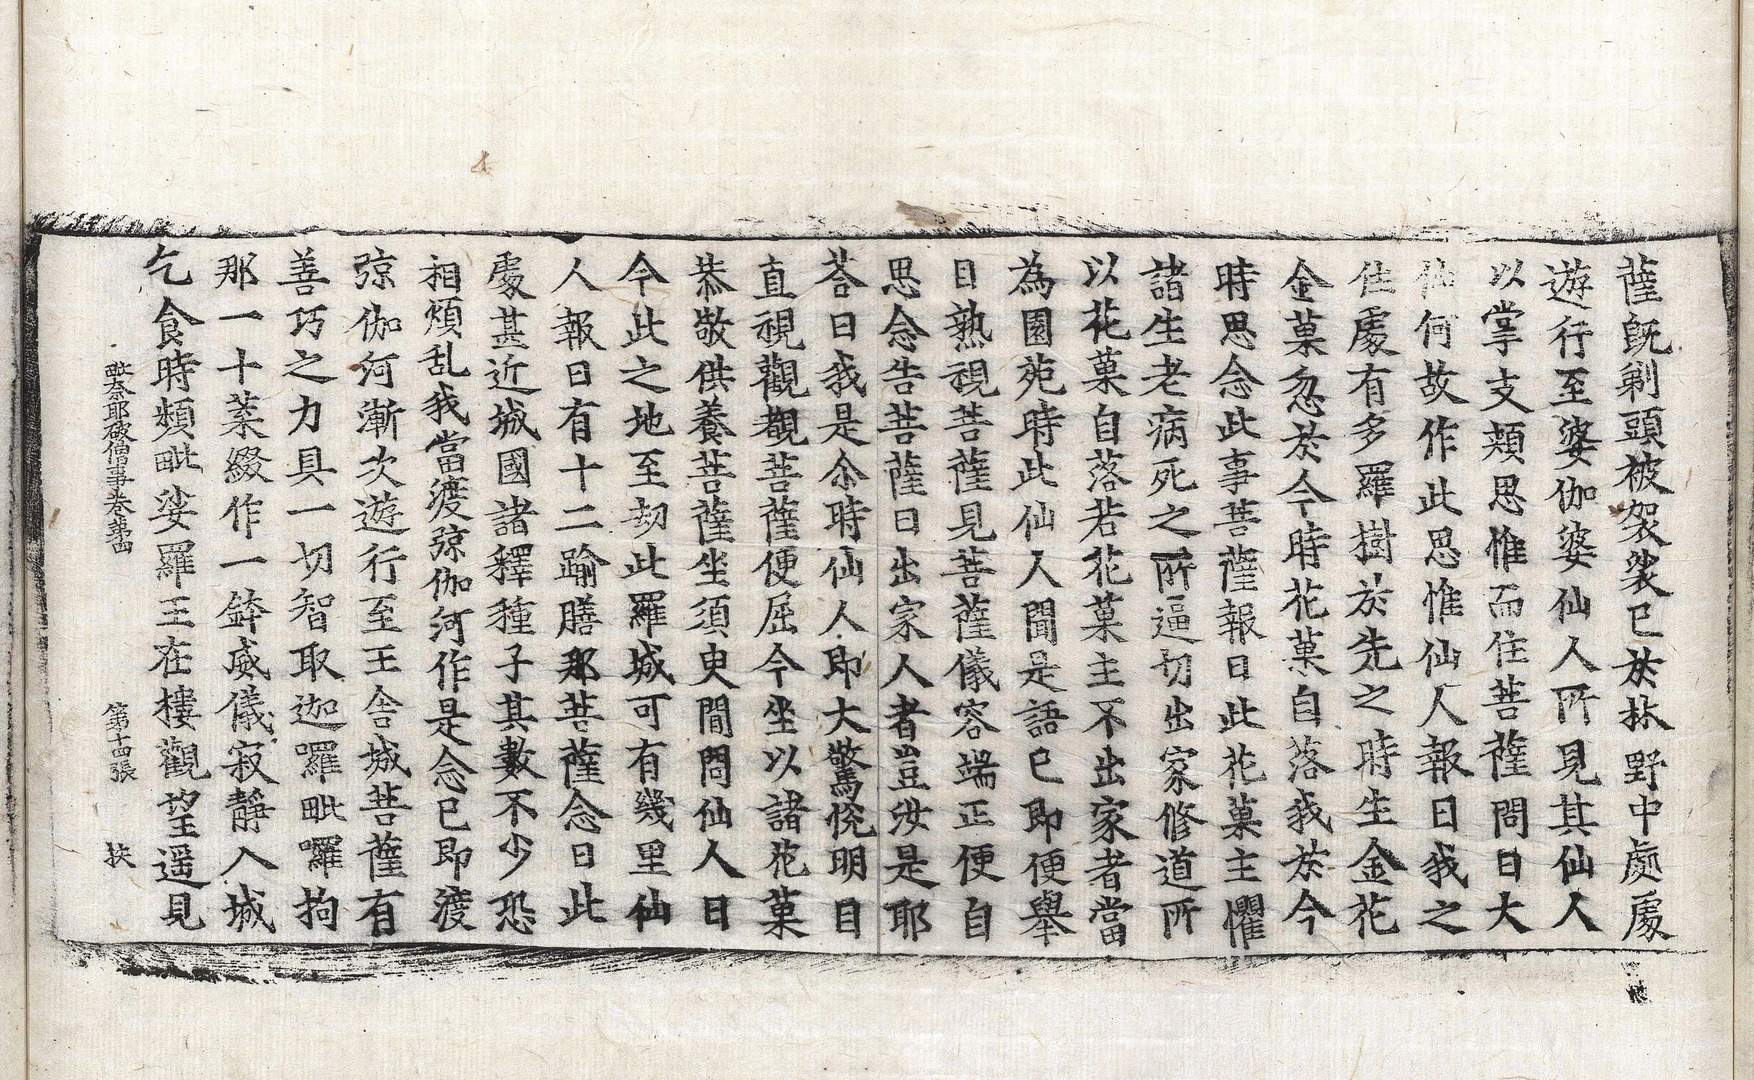 薩旣剃頭被袈裟已於林野中處處
遊行至婆伽婆仙人所見其仙人
以掌支頰思惟而住菩薩問曰大
仙何故作此思惟仙人報曰我之
住處有多羅樹於先之時生金花
金菓忽於今時花菓自落我於今
時思念此事菩薩報曰此花菓主懼
諸生老病死之所逼切出家修道所
以花菓自落若花菓主不出家者當
為園苑時此仙人聞是語已即便舉
目熟視菩薩見菩薩儀容端正便自
思念告菩薩曰出家人者豈汝是耶
荅曰我是尒時仙人即大驚悅明目
直視觀覩菩薩便屈令坐以諸花菓
恭敬供養菩薩坐須臾間問仙人曰
今此之地至刼此羅城可有幾里仙
人報曰有十二踰膳那菩薩念曰此
處甚近城國諸釋種子其數不少恐
相煩乱我當渡弶伽河作是念已即渡
弶伽河漸次遊行至王舍城菩薩有
善巧之力具一切智取迦囉毗囉拘
那一十葉綴作一鉢威儀寂靜入城
乞食時頻毗娑羅王在樓觀望遥見
毗奈耶破僧事卷第四 第十四張 扶